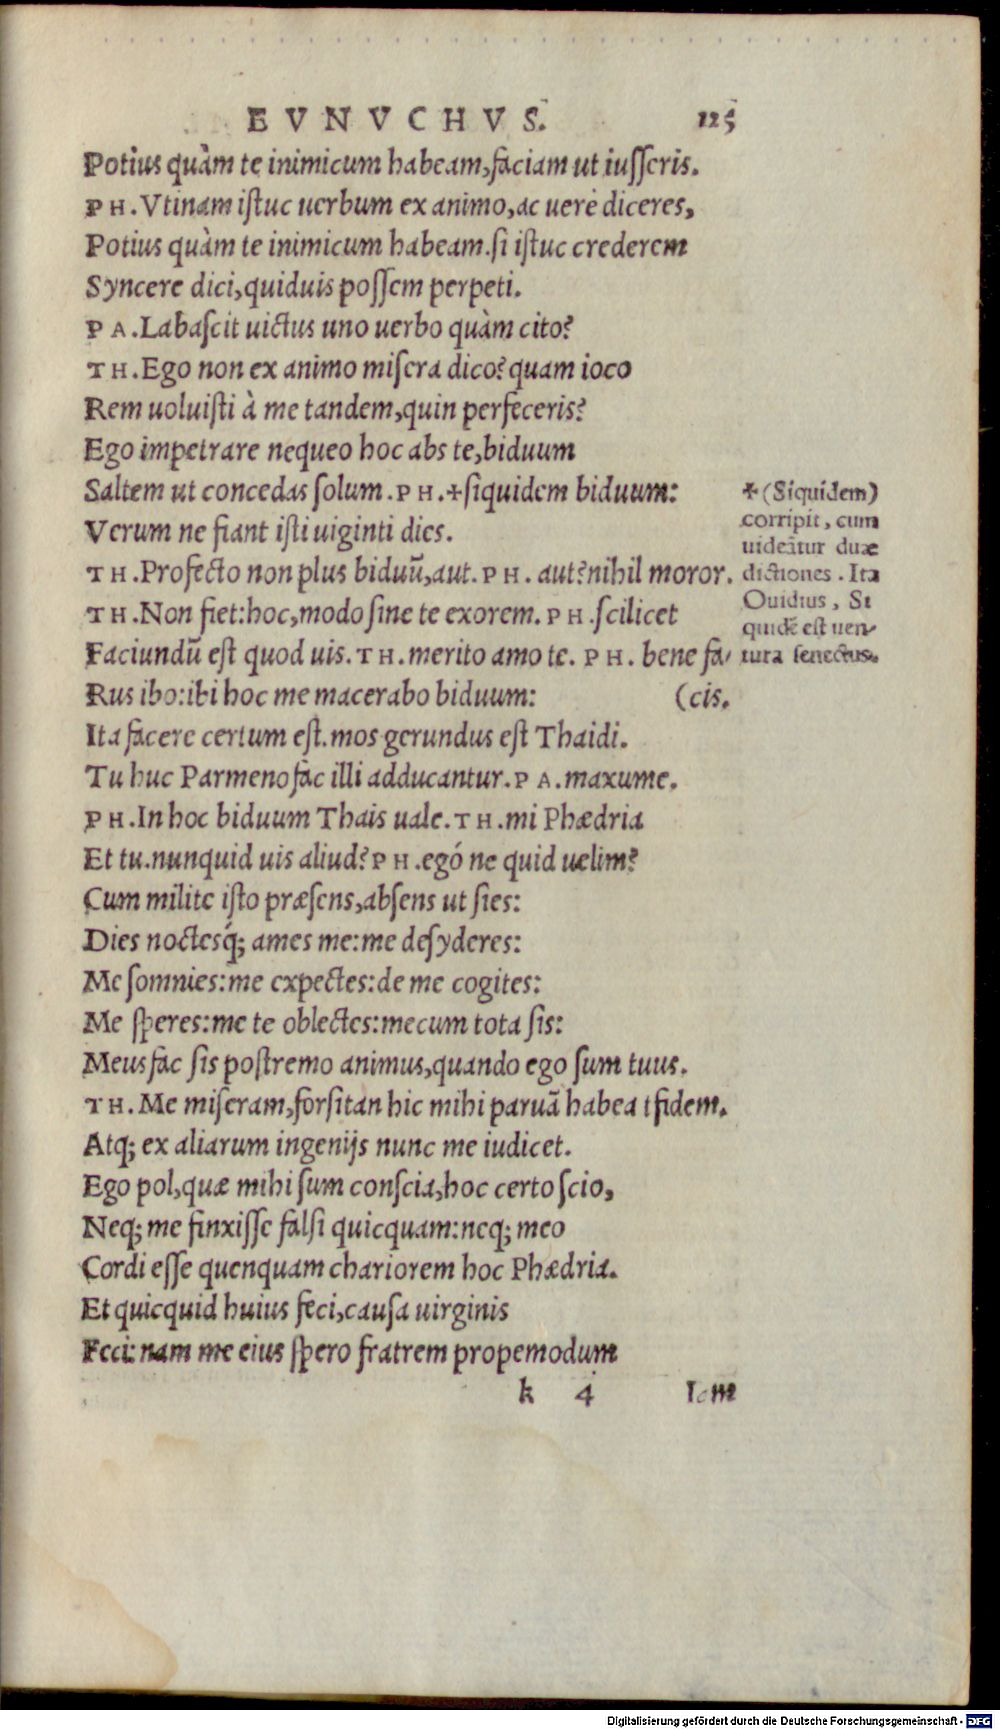 EVNVCHVS. 125
Potius quàm te inimicum habeam,faciam ut iusseris.
PH.Vtinam istuc uerbum ex animo,ac uerè diceres,
Potius quàm te inimicum habeam.si istuc crederem
Syncere dici,quiduis possem perpeti.
PA.Labascit uictus uno uerbo quàm cito?
TH.Ego non ex animo misera dico?quam ioco
Rem uoluisti à me tandem,quin perfeceris?
Ego impetrare nequeo hoc abs te,biduum
Saltem ut concedas solum.PH.+siquidem biduum:
Verum ne fiant isti uiginti dies.
TH.Profecto non plus biduũ,aut.PH. aut?nihil moror.
TH.Non fiet:hoc,modo sine te exorem.PH.scilicet
Faciundũ est quod uis.TH.merito amo te. PH. bene fa-
Rus ibo:ibi hoc me macerabo biduum: (cis.
Ita facere certum est.mos gerundus est Thaidi.
Tu huc Parmeno fac illi adducantur.PA.maxume.
PH.In hoc biduum Thais uale.TH.mi Phædria
Et tu.nunquid uis aliud?PH.egó ne quid uelim?
Cum milite isto præsens,absens ut sies:
Dies noctesq́; ames me:me desyderes:
Me somnies:me expectes:de me cogites:
Me speres:me te oblectes:mecum tota sis:
Meus fac sis postremo animus,quando ego sum tuus.
TH.Me miseram,forsitan hic mihi paruã habea tfidem.
Atq; ex aliarum ingenijs nunc me iudicet.
Ego pol,quæ mihi sum conscia,hoc certo scio,
Neq; me finxisse falsi quicquam:neq; meo
Cordi esse quenquam chariorem hoc Phædria.
Et quicquid huius feci,causa uirginis
Feci: nam me eius spero fratrem propemodum
k 4 Iam
+(Siquidem)
corripit, cum
uideãtur duæ
dictiones. Ita
Ouidius, Si
quidẽ est uen-
tura senectus.
Digitalisierung gefördert durch die Deutsche Forschungsgemeinschaft - DFG